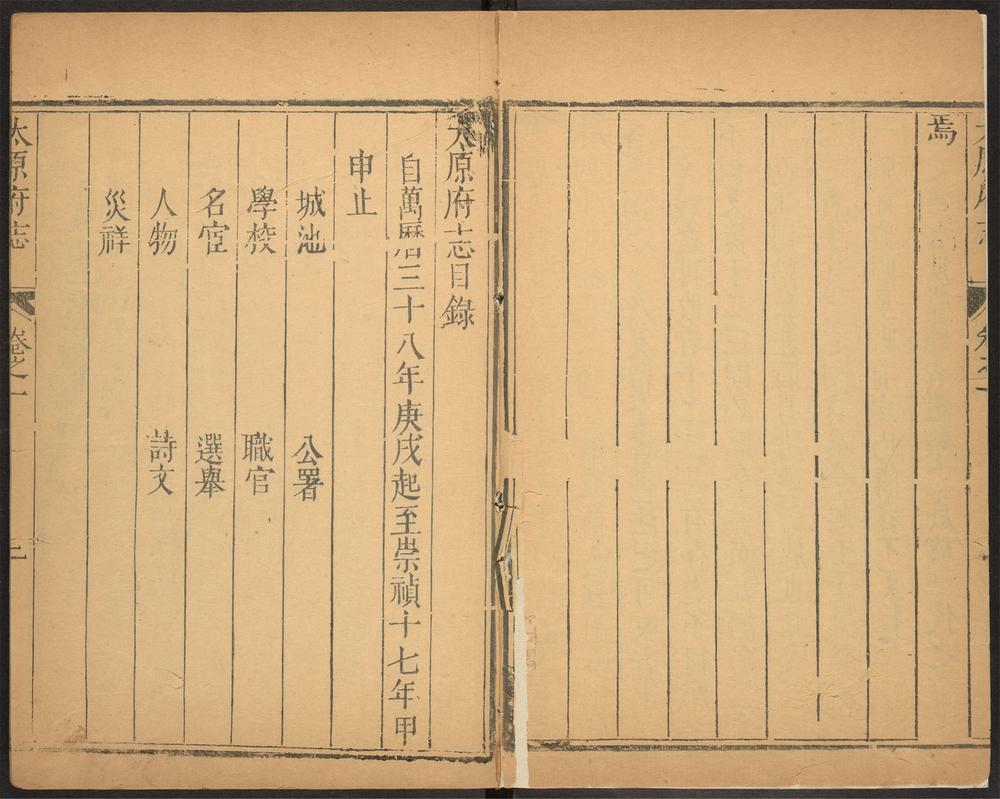 焉
太原府志目錄
自萬曆三十八年庚戌起至崇禎十七年甲
申止
城池 公署
學校 職官
名宦 選舉
人物 詩文
災祥
太原府志 卷之一 二